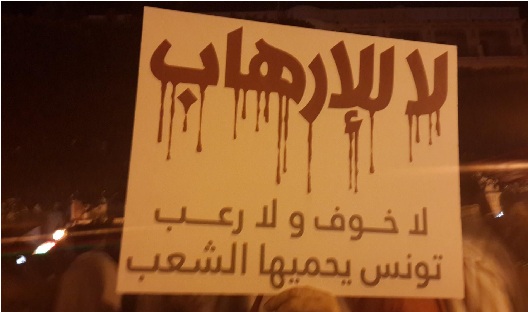 لا للإرهاب
لا خوف و لا رعب
تونس يحميها الشعب